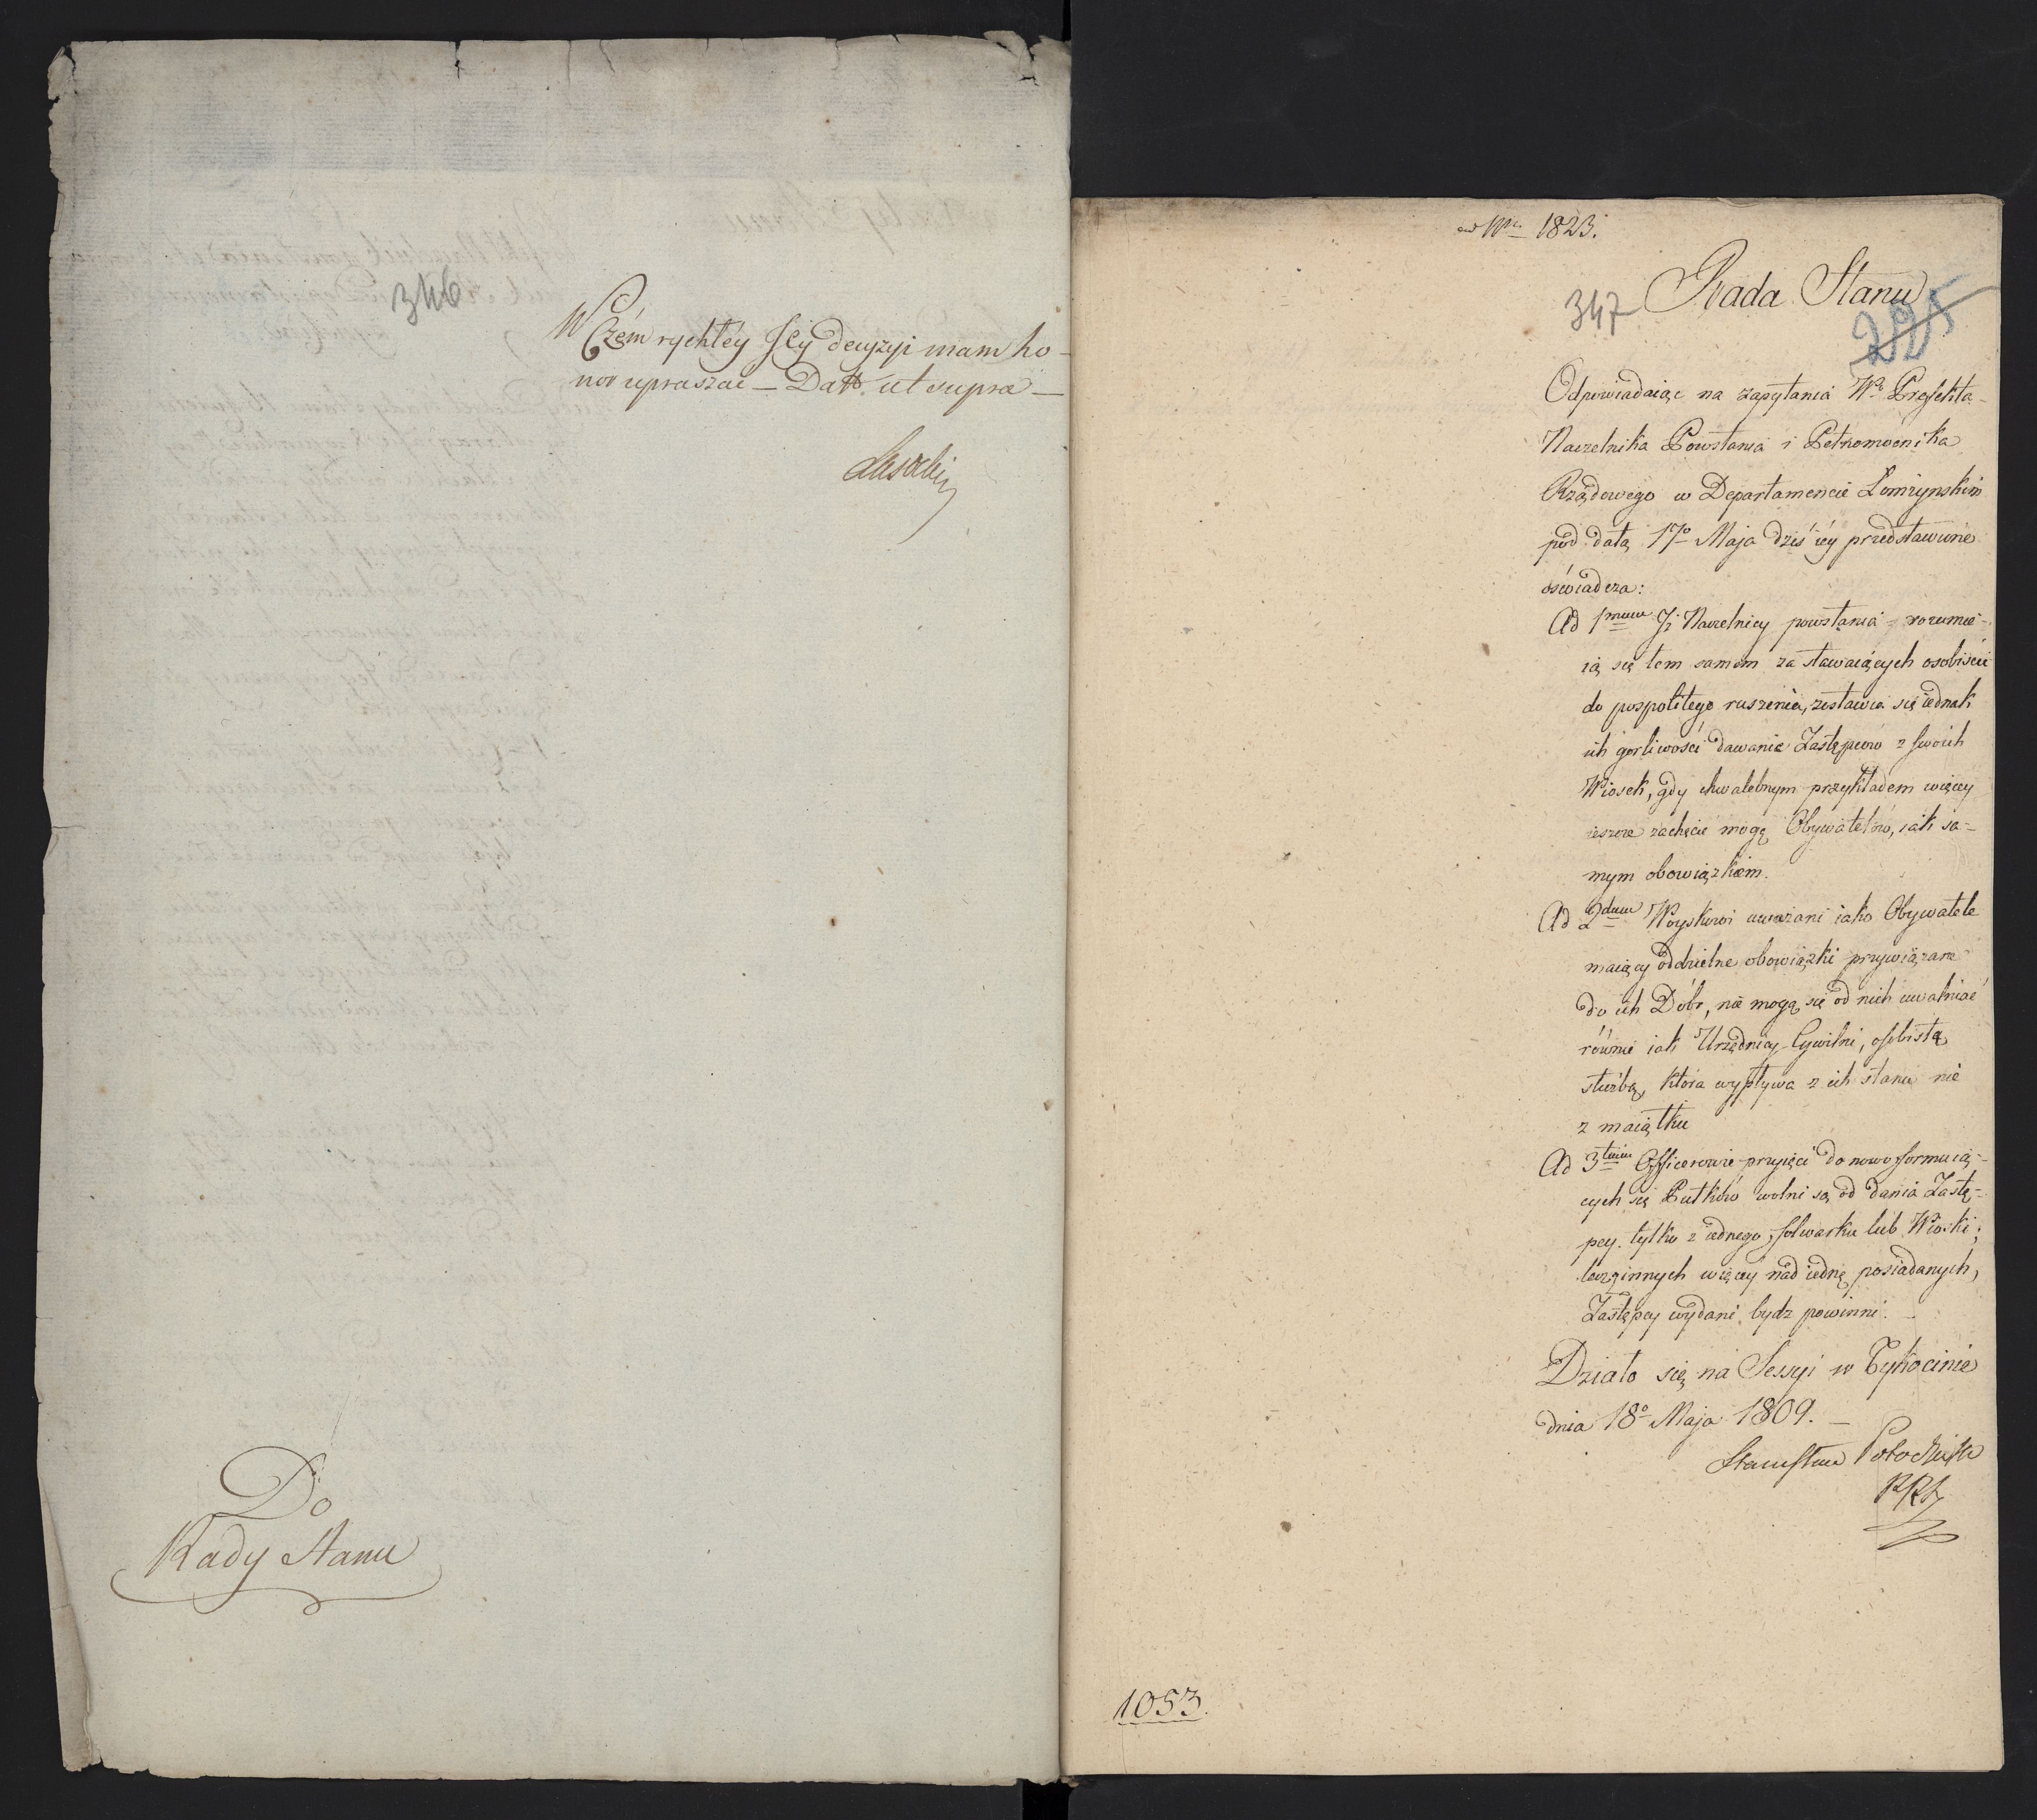 346
W Czém rychłéy Jéy decyzyi mam ho-
nor upraszać — Datt. ut supra —
Lasocki
Do
Rady Stanu
ad Nrm 1823.
347
Rada Stanu
225
Odpowiadaiąc na zapytania W° Prefekta
Naczelnika Powstania i Pełnomocnika
Rządowego w Departamencie Łomżynskim
pod datą 17° Maja dziś iéy przedstawione
oświadcza:
Ad 1mum Iż Naczelnicy powstania rozumie-
ią się tem samem za stawaiących osobiscie
do pospolitego ruszenia, zostawia się iednak
ich gorliwości dawanie Zastępców z swoich
Wiosek, gdy chwalebnym przykładem więcey
ieszcze zachęcić mogą Obywatelów, iak sa-
mym obowiązkiem.
Ad 2dum Woyskowi uważani iako Obywatele
maiący oddzielne obowiązki przywiązane
do ich Dóbr, nie mogą się od nich uwalniać
równie iak Urzędnicy Cywilni, osobistą
służbą, która wypływa z ich stanu nie
z maiątku
Ad 3tium Officerowie przyięci do nowoformuią-
cych się Pułków wolni są od dania Zastę-
pcy tylko z iednego folwarku lub Wioski;
lecz z innych więcey nad iednę posiadanych,
Zastępcy wydani bydz powinni. —
Działo się na Sessyi w Tykocinie
dnia 18° Maja 1809. —
Stanisław Potocki
1053.